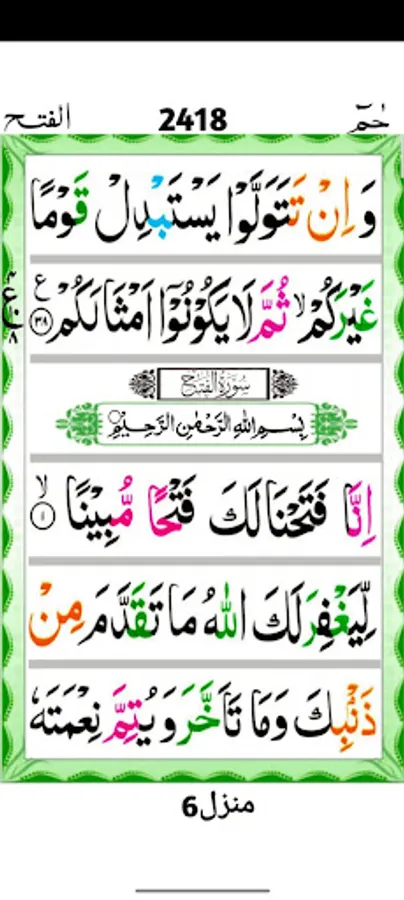 الفتح 2418 حٰمٓ
وَ اِنْ تَتَوَلَّوْا یَسْتَبْدِلْ قَوْمًا
غَیْرَكُمْۙ ثُمَّ لَا یَكُوْنُوْۤا اَمْثَالَكُمْ ۳۸ ع
ع ۸
سُوْرَةُ الْفَتْحِ
بِسْمِ اللّٰهِ الرَّحْمٰنِ الرَّحِیْمِ
اِنَّا فَتَحْنَا لَكَ فَتْحًا مُّبِیْنًا ۱ ۙ
لِّیَغْفِرَ لَكَ اللّٰهُ مَا تَقَدَّمَ مِنْ
ذَنْۢبِكَ وَ مَا تَاَخَّرَ وَ یُتِمَّ نِعْمَتَهٗ
منزل6